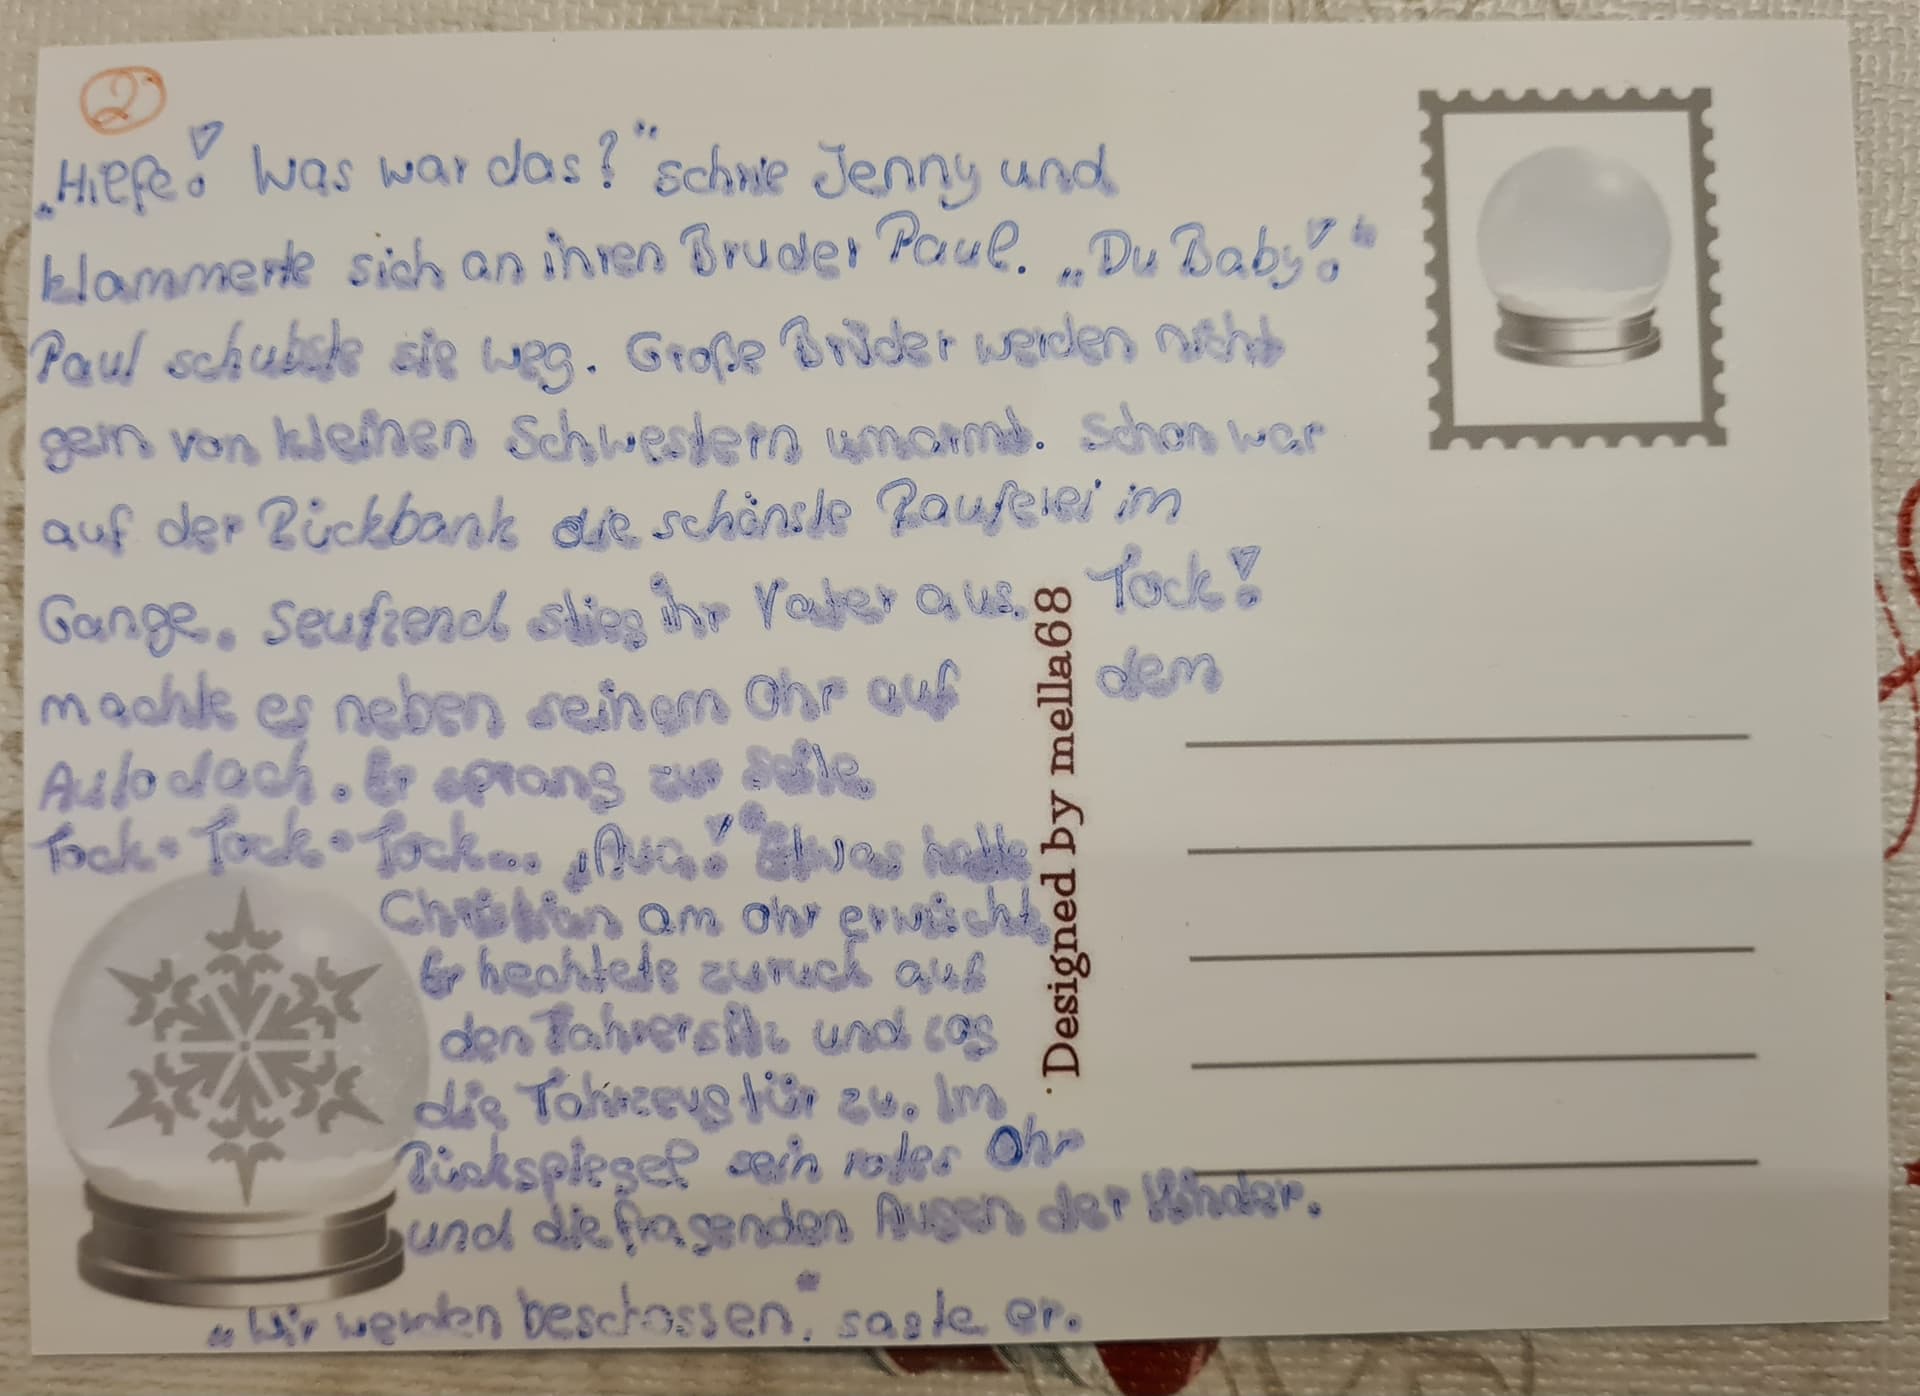 2
„Hilfe! Was war das?“ schrie Jenny und
klammerte sich an ihren Bruder Paul. „Du Baby!“
Paul schubste sie weg. Große Brüder werden nicht
gern von kleinen Schwestern umarmt. Schon war
auf der Rückbank die schönste Rauferei im
Gange. Seufzend stieg ihr Vater aus. Tock!
machte es neben seinem Ohr auf dem
Autodach. Er sprang zur Seite
Tock. Tock. Tock... „Aua!“ Etwas hatte
Christian am Ohr erwischt.
Er hechtete zurück auf
den Fahrersitz und zog
die Fahrzeugtür zu. Im
Rückspiegel sein rotes Ohr
und die fragenden Augen der Kinder.
„Wir werden beschossen“, sagte er.
Designed by mella68